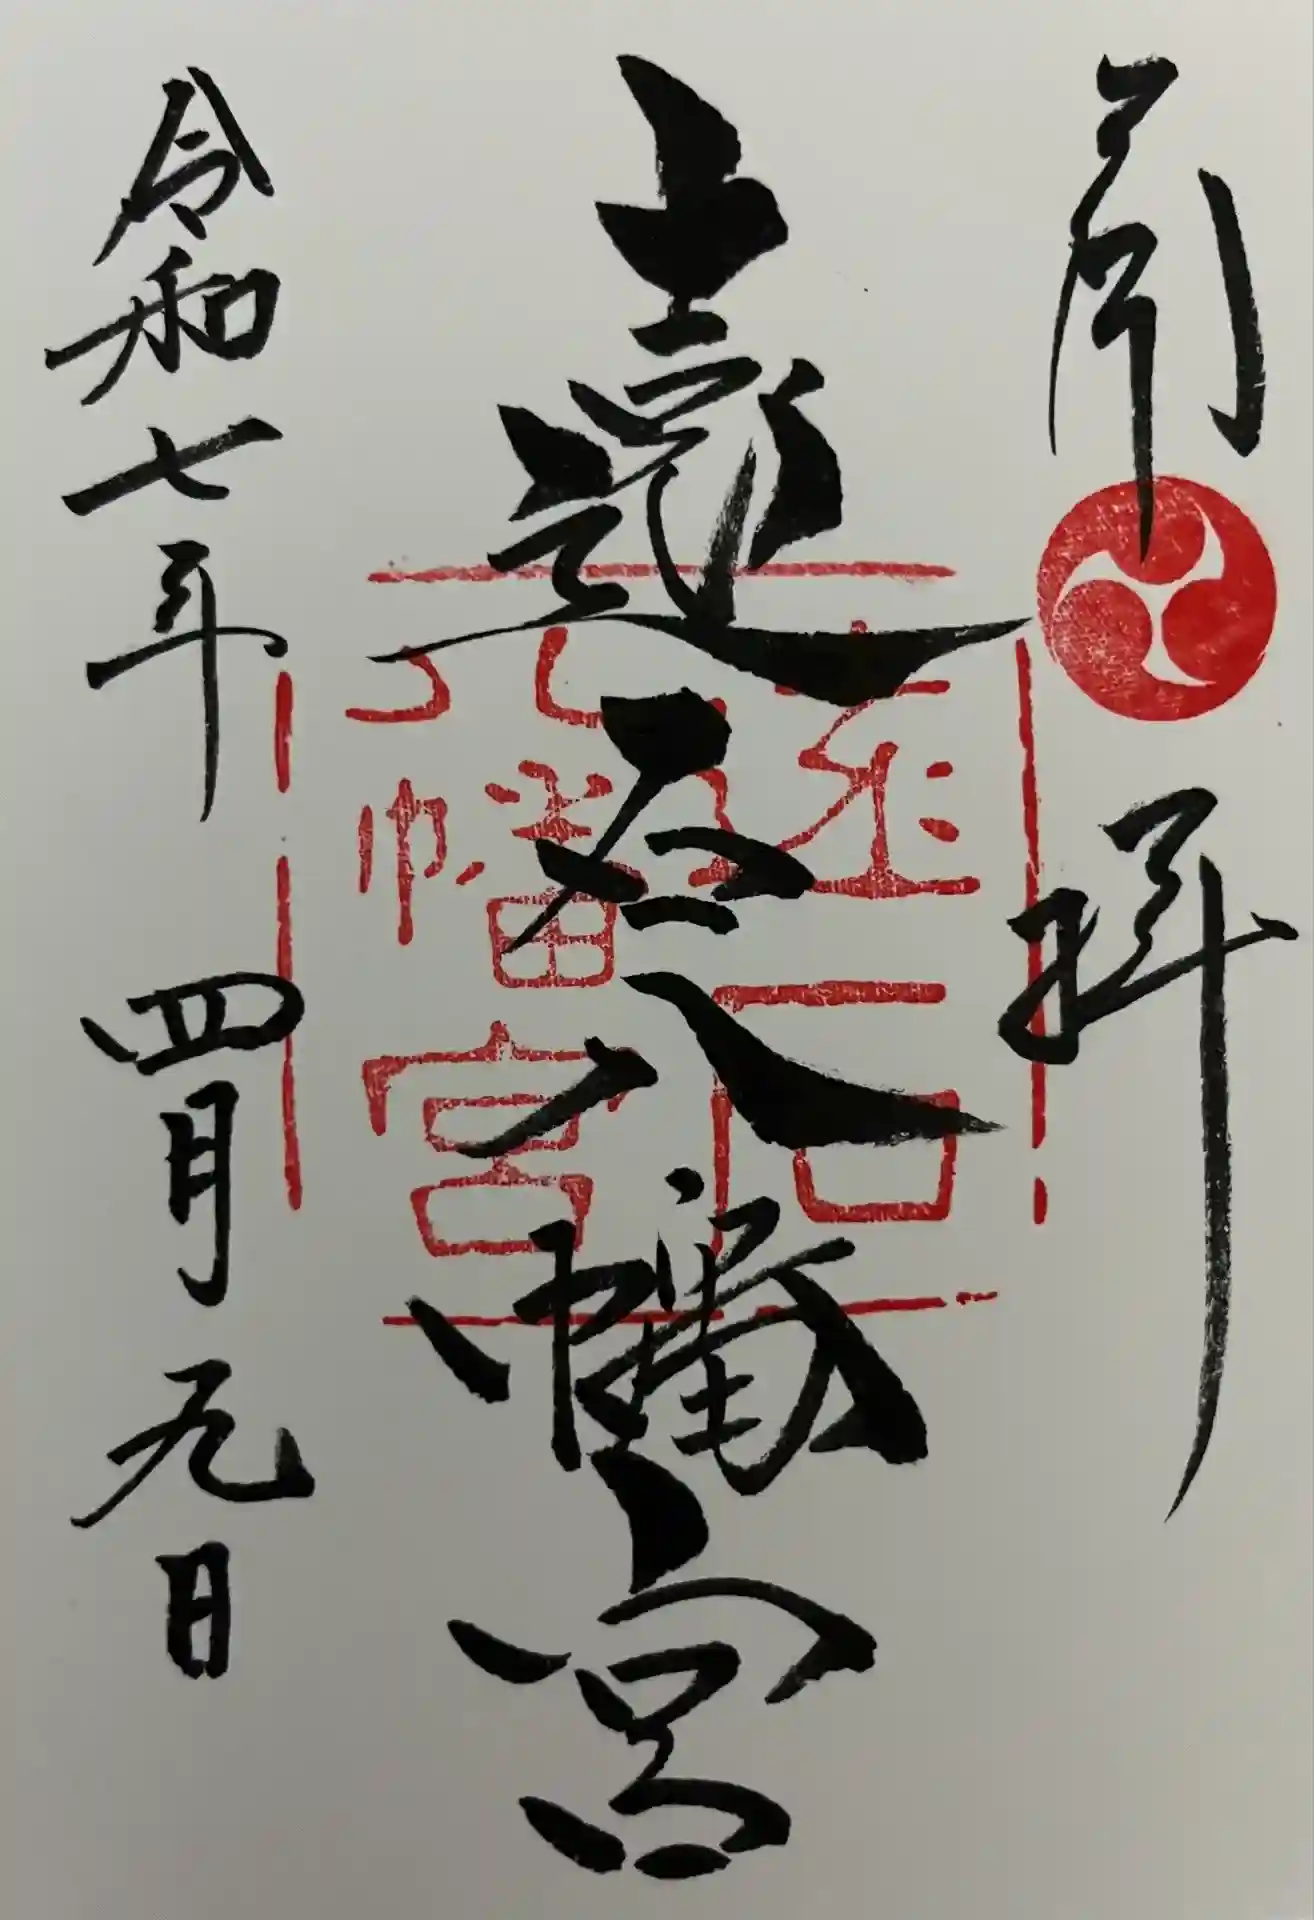 拝
遠石八幡宮
令和七年 四月九日
遠石
八幡宮